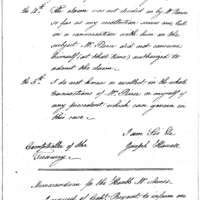 No 4th The claim was not decided on by Mr. Pierce
so far as my recollection serves me, but
in a conversation with him on the
subject Mr. Pierce did not conceive
himself (at that time) authorized to
admit the claim.
No 5th I do not know or recollect in the whole
transactions of Mr. Pierce or myself of
any precedent which can govern in
this case.
I am Sir &c.
Comptroller of the Joseph Howell
Treasury
Memorandum for the Honble Mr. James
of Capt. Bryant to inform me